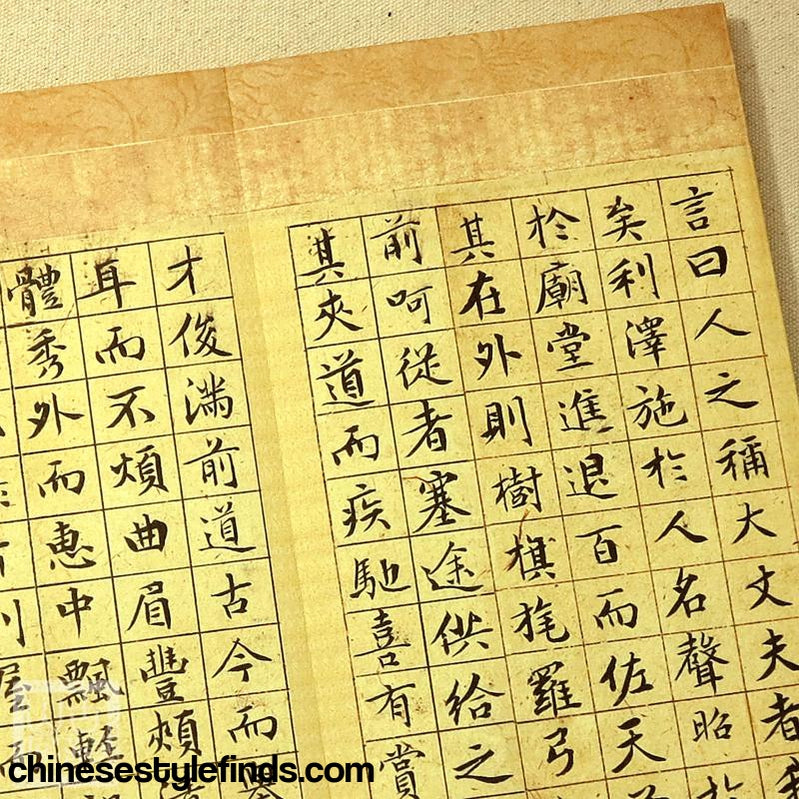 言曰人之稱大丈夫者
矣利澤施於人名聲昭於
於廟堂進退百而佐天
其在外則樹旗旄羅弓
前呵從者塞途供給之
其夾道而疾馳喜有賞
才俊滿前道古今而
耳而不煩曲眉豐頰清
體秀外而惠中飄輕
chinesestylefinds.com